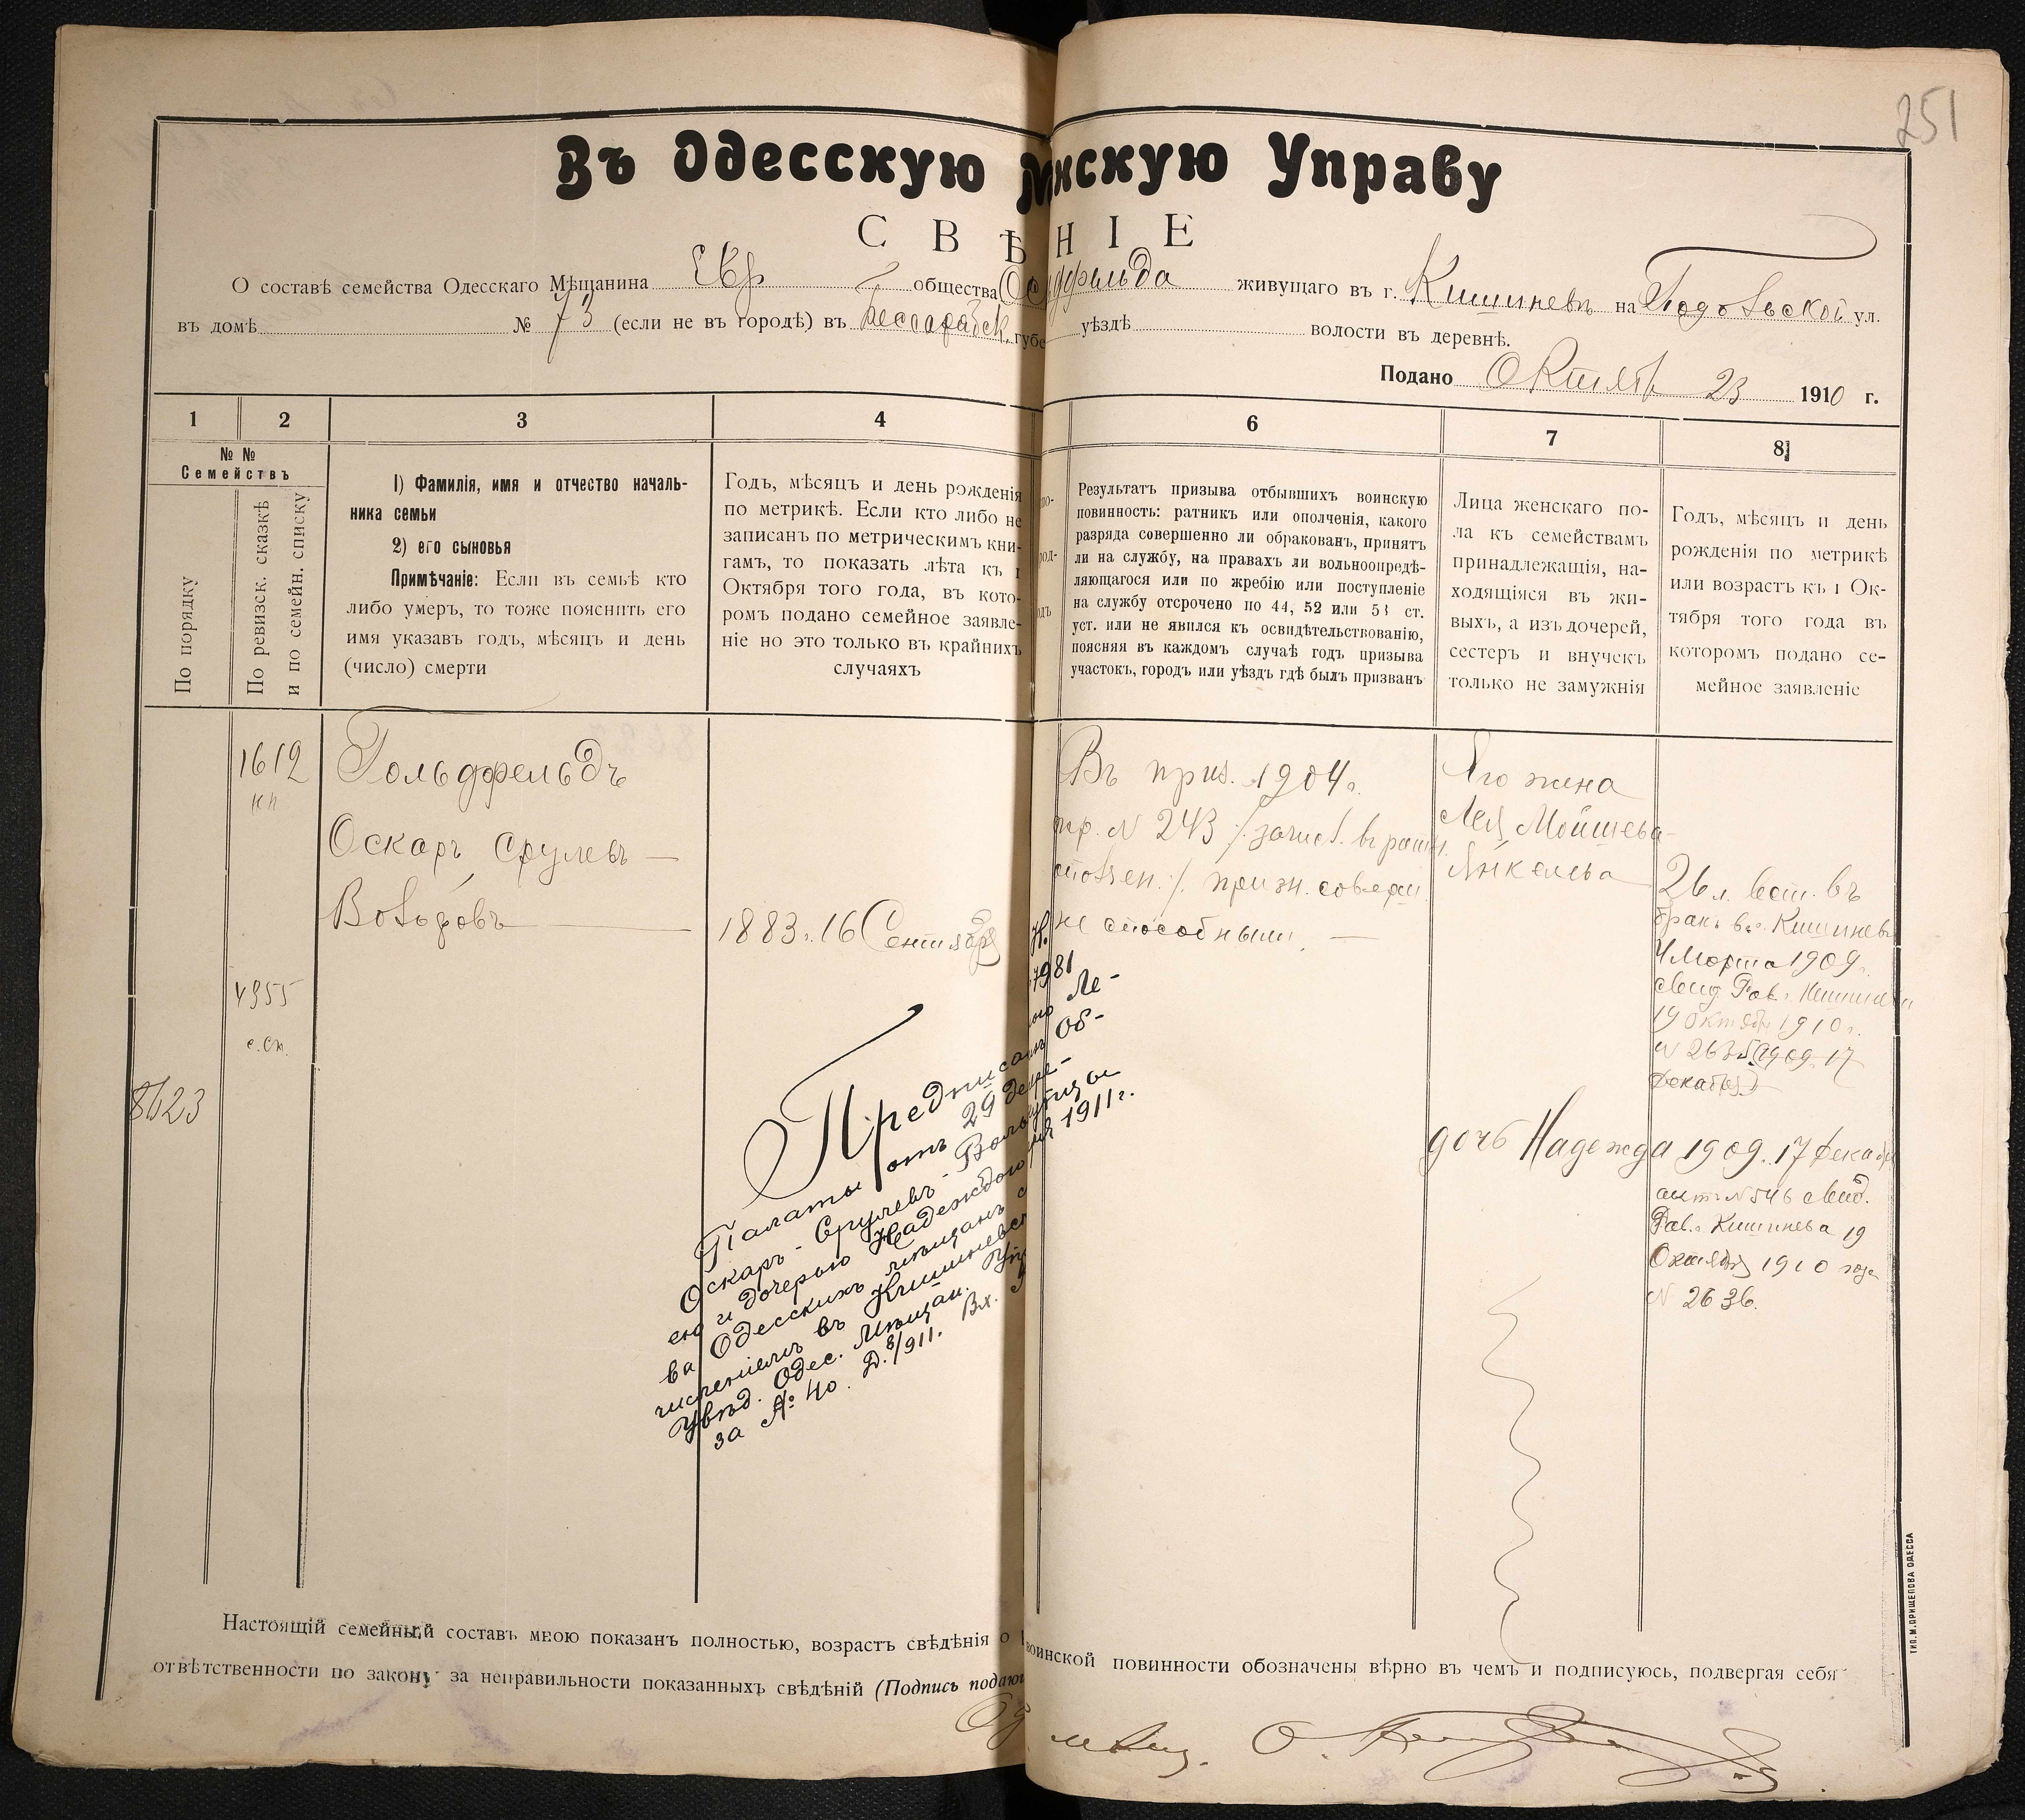 251
Въ Одесскую М нскую Управу
С В Ѣ Н І Е
О составѣ семейства Одесскаго Мѣщанина Евр общества Ос дфельда живущаго въ г. Кишиневъ на Подольской ул.
въ домѣ № 73 (если не въ городѣ) въ Бессарабск. губе уѣздѣ волости въ деревнѣ.
Подано Октября 23 1910 г.
1 2 3 4 6 7 8
№ №
Семействъ
По порядку
По ревизск. сказкѣ
и по семейн. списку
1) Фамилія, имя и отчество началь-
ника семьи
2) его сыновья
Примѣчаніе: Если въ семьѣ кто
либо умеръ, то тоже пояснить его
имя указавъ годъ, мѣсяцъ и день
(число) смерти
Годъ, мѣсяцъ и день рожденія
по метрикѣ. Если кто либо не
записанъ по метрическимъ кни-
гамъ, то показать лѣта къ 1
Октября того года, въ кото-
ромъ подано семейное заявле-
ніе но это только въ крайнихъ
случаяхъ
Результатъ призыва отбывшихъ воинскую
повинность: ратникъ или ополченія, какого
разряда совершенно ли обракованъ, принятъ
ли на службу, на правахъ ли вольноопредѣ-
ляющагося или по жребію или поступленіе
на службу отсрочено по 44, 52 или 53 ст.
уст. или не явился къ освидѣтельствованію,
поясняя въ каждомъ случаѣ годъ призыва
участокъ, городъ или уѣздъ гдѣ былъ призванъ
Лица женскаго по-
ла къ семействамъ
принадлежащія, на-
ходящіяся въ жи-
выхъ, а изъ дочерей,
сестеръ и внучекъ
только не замужнія
Годъ, мѣсяцъ и день
рожденія по метрикѣ
или возрастъ къ 1 Ок-
тября того года въ
которомъ подано се-
мейное заявленіе
1612
кн
4955
с.сп.
8623
Гольдфельдъ
Оскаръ Срулевъ —
Вольфовъ
1883 г. 16 Сентября
Въ приз. 1904 г.
пр. № 243 /: зачисл. въ ратн.
ополчен. :/ призн. соверш
не способнымъ. —
Его жена
Лея Мойшева-
Янкелева
26 л. вст. въ
бракъ въ г. Кишиневѣ
4 Марта 1909 г.
свид Рав. г. Кишинева
19 октября 1910 г.
№ (1909 17
декабря)
дочь Надежда 1909. 17 декабря
актъ № 546 свид.
Рав. г. Кишинева 19
Октября 1910 года
№ 2636.
Н.
7981
Предписан ого Ле-
Палаты отъ 29 дека- Об-
Оскаръ-Срулевъ-Воль утцы
ею и дочерью Надеждою 1911 г.
ва Одесскихъ мѣщанъ с
численіемъ въ Кишиневск
Увѣд. Одес. Мѣщан. Уп
за № 40. Д. 8/911. Вх.
Настоящій семейный составъ мною показанъ полностью, возрастъ свѣдѣнія о воинской повинности обозначены вѣрно въ чемъ и подписуюсь, подвергая себя
отвѣтственности по закону за неправильности показанныхъ свѣдѣній (Подпись подаю
Од мѣщ. О.
ТИП. М. ПРИЩЕПОВА ОДЕССА